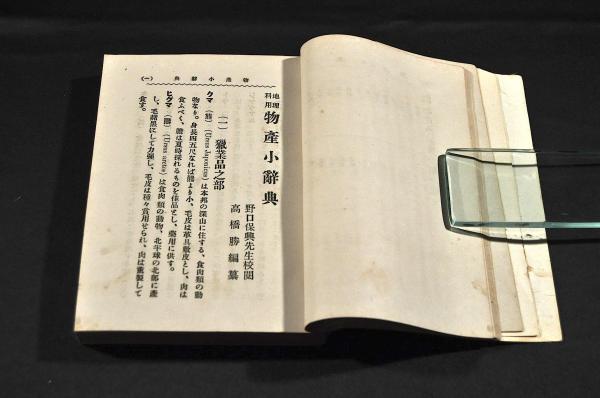 物產小辭典 (一)
地理科用 物產小辭典
野口保興先生校閱
高橋勝編纂
(一) 獵業品之部
クマ (熊) (Ursus Japonicus) は本邦の深山に住する、食肉類の動
物なり。身長四五尺なれば羆より小、毛皮は革具敷皮とし、肉は
食ふべく、膽は夏時採れるものを佳品とし、藥用に供す。
ヒグマ (羆) (Ursus arctos) は食肉類の動物、北半球の北部に產
し、毛赭黑にして力强し、毛皮は種々賞用せられ、肉は燻製して
食す。